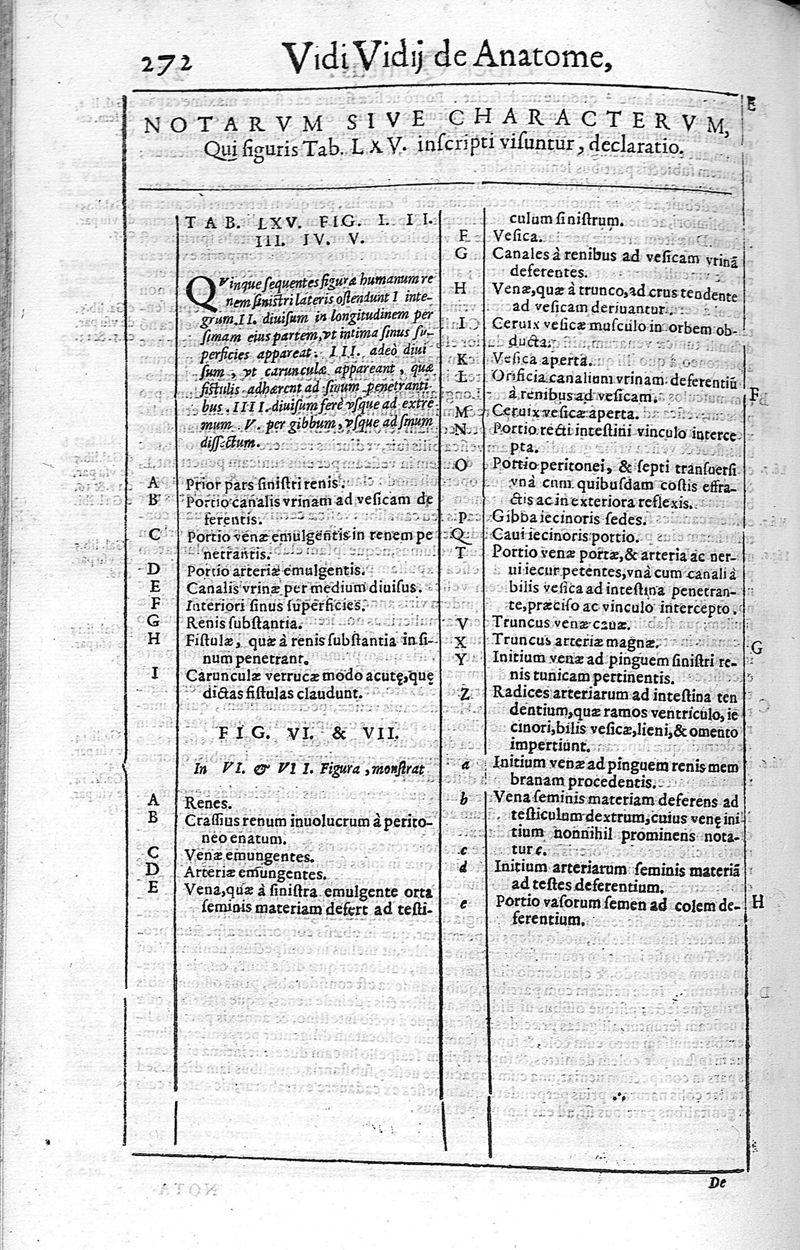 272 Vidi Vidij de Anatome,
NOTARVM SIVE CHARACTERVM,
Qui figuris Tab. LXV. inſcripti viſuntur, declaratio.
TAB. LXV. FIG. I. II.
III. IV. V.
QVinque ſequentes figuræ humanum re
nem ſiniſtri lateris oſtendunt I inte-
grum. II. diuiſum in longitudinem per
ſimam eius partem, vt intima ſinus ſu-
perficies appareat. III. adeò diui
ſum, vt carunculæ appareant, quæ
fiſtulis adhærent ad ſinum penetranti-
bus. IIII. diuiſum ferè vſque ad extre
mum. V. per gibbum, vſque ad ſinum
diſſectum.
A Prior pars ſiniſtri renis.
B Portio canalis vrinam ad veſicam de
ferentis.
C Portio venæ emulgentis in renem pe
netrantis.
D Portio arteriæ emulgentis.
E Canalis vrinæ per medium diuiſus.
F Interiori ſinus ſuperficies.
G Renis ſubſtantia.
H Fiſtulæ, quæ à renis ſubſtantia in ſi-
num penetrant.
I Carunculæ verrucæ modo acutę, quę
dictas fiſtulas claudunt.
FIG. VI. & VII.
In VI. & VII. Figura, monſtrat
A Renes.
B Craſſius renum inuolucrum à perito-
nēo enatum.
C Venæ emungentes.
D Arteriæ emungentes.
E Vena, quæ à ſiniſtra emulgente orta
ſeminis materiam defert ad teſti-
culum ſiniſtrum.
F Veſica.
G Canales à renibus ad veſicam vrinã
deferentes.
H Venæ, quæ à trunco, ad crus tendente
ad veſicam deriuantur.
I Ceruix veſicæ muſculo in orbem ob-
ducta.
K Veſica aperta.
L Orificia canalium vrinam deferentiũ
à renibus ad veſicam.
M Ceruix veſicæ aperta.
N Portio recti inteſtini vinculo interce
pta.
O Portio peritonei, & ſepti tranſuerſi
vnà cum quibuſdam coſtis effra-
ctis ac in exteriora reflexis.
P Gibba iecinoris ſedes.
Q Caui iecinoris portio.
T Portio venæ portæ, & arteria ac ner-
ui iecur petentes, vnà cum canali à
bilis veſica ad inteſtina penetran-
te, præciſo ac vinculo intercepto.
V Truncus venæ cauæ.
X Truncus arteriæ magnæ.
Y Initium venæ ad pinguem ſiniſtri re-
nis tunicam pertinentis.
Z Radices arteriarum ad inteſtina ten
dentium, quæ ramos ventriculo, ie
cinori, bilis veſicæ, lieni, & omento
impertiunt.
a Initium venæ ad pinguem renis mem
branam procedentis.
b Vena ſeminis materiam deferens ad
teſticulum dextrum, cuius venę ini
tium nonnihil prominens nota-
c tur c.
d Initium arteriarum ſeminis materiã
ad teſtes deferentium.
e Portio vaſorum ſemen ad colem de-
ferentium.
E
F
G
H
De